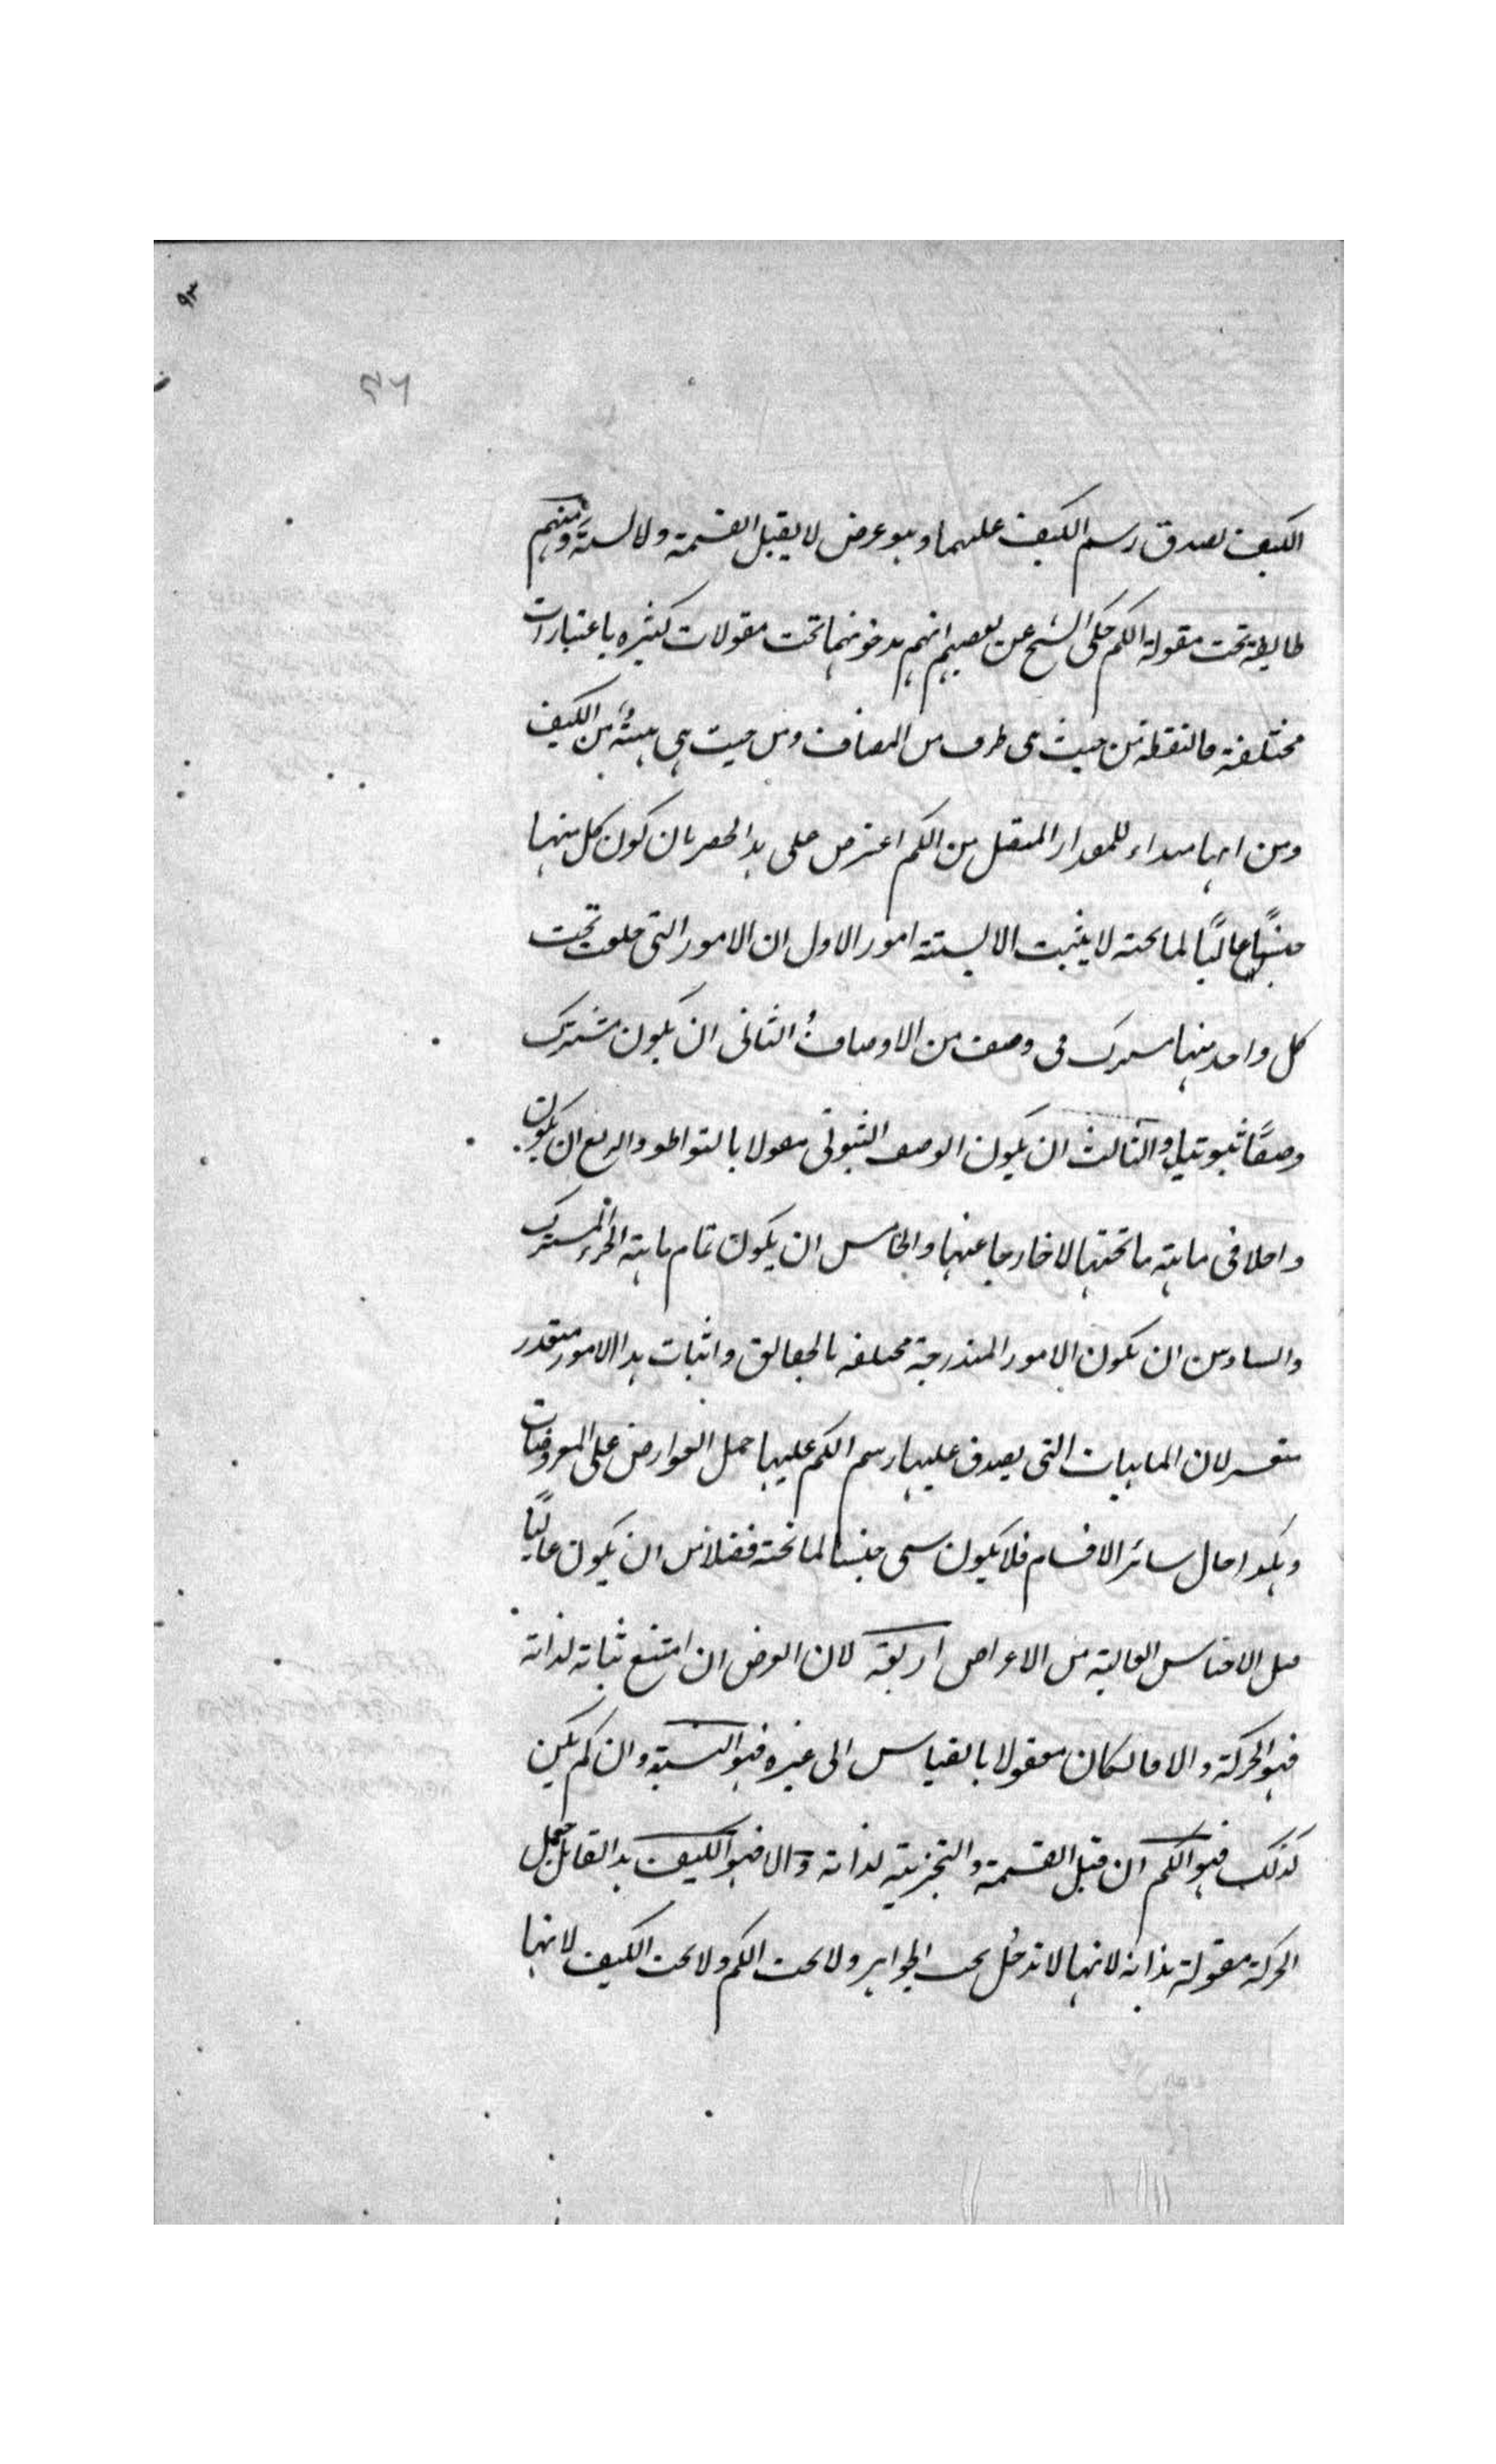 ٩٣
٤٦
الكيف لصدق رسم الكيف عليهما وهو عرض لا يقبل القسمة ولا نسبة ومنهم
طايفة تحت مقولة الكم حكى الشيخ عن بعضهم انهم يدخلونهما تحت مقولات كثيره باعتبارات
مختلفة فالنقطة من حيث هى طرف من المضاف ومن حيث هى هيئة من الكيف
ومن انها مبداء للمقدار المتصل من الكم اعترض على هذا الحصر بان كون كل منها
جنسًا عاليًا لما تحته لا يثبت الا بستة امور الاول ان الامور التى جعلت تحت
كل واحد منها مشترك فى وصف من الاوصاف الثانى ان يكون مشترك
وصفًا ثبوتيا والثالث ان يكون الوصف الثبوتى مقولا بالتواطو والربع ان يكون
داخلا فى ماهية ما تحتها لا خارجا عنها والخامس ان يكون تمام ماهية الجزء المشترك
والسادس ان يكون الامور المندرجة مختلفه بالحقائق واثبات هذا الامور متعذر
متعسر لان الماهيات التى يصدق عليها رسم الكم عليها حمل العوارض على المعروضات
وهكذا حال سائر الاقسام فلا يكون شى جنسا لما تحته فضلا من ان يكون عاليًا
قيل الاجناس العالية من الاعراض اربعة لان العرض ان امتنع ثباته لذاته
فهو الحركة والا فان كان معقولا بالقياس الى غيره فهو النسبة وان لم يكن
كذلك فهو الكم ان قبل القسمة والتجزية لذاته والا فهو الكيف هذا القائل جعل
الحركة مقولة بذاته لانها لا تدخل تحت الجواهر ولا تحت الكم ولا تحت الكيف لانها